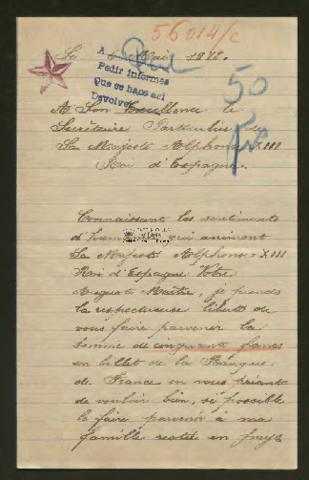 56014/c
Le Mai 1916.
A
Pedir informes
Que se hace así
Devolver
50
A Son Excellence le
Secrétaire Particulier de
Sa Majesté Alphonse XIII
Roi d'Espagne.
Connaissant les sentiments
d'humanité qui animent
Sa Majesté Alphonse XIII
Roi d'Espagne Votre
Auguste Maître, je prends
la respectueuse liberté de
vous faire parvenir la
somme de cinquante francs
en billet de la Banque
de France en vous priant
de vouloir bien, si possible
la faire parvenir à ma
famille restée en pays